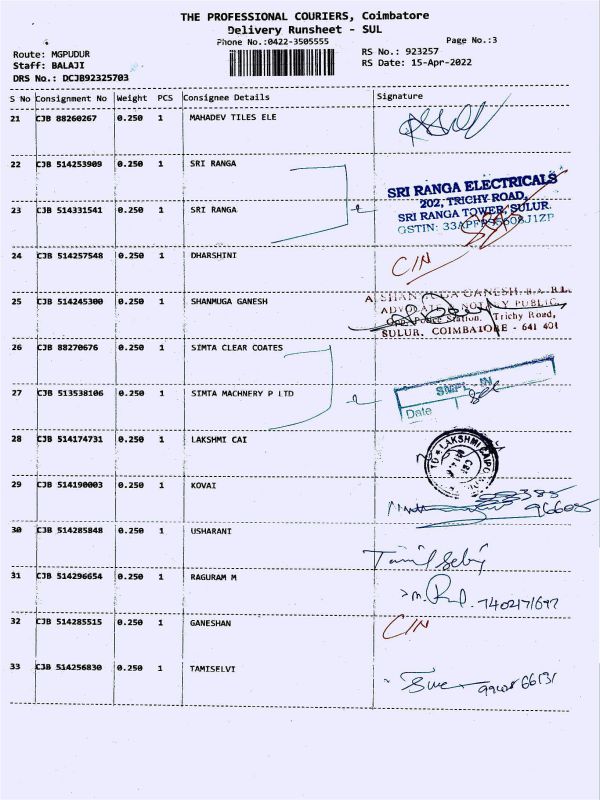 THE PROFESSIONAL COURIERS, Coimbatore
Delivery Runsheet - SUL
Phone No.:0422-3505555
Page No.:3
Route: MGPUDUR
RS No.: 923257
Staff: BALAJI
RS Date: 15-Apr-2022
DRS No.: DCJB92325703
S No Consignment No Weight PCS Consignee Details Signature
21 CJB 88260267 0.250 1 MAHADEV TILES ELE
22 CJB 514253909 0.250 1 SRI RANGA
SRI RANGA ELECTRICALS
202, TRICHY ROAD,
23 CJB 514331541 0.250 1 SRI RANGA
SRI RANGA TOWER, SULUR.
GSTIN:
24 CJB 514257548 0.250 1 DHARSHINI C/N
25 CJB 514245300 0.250 1 SHANMUGA GANESH
ADVOCATE NOTARY PUBLIC
Opp. Police Station. Trichy Road,
SULUR, COIMBATORE - 641 401
26 CJB 88270676 0.250 1 SIMTA CLEAR COATES
27 CJB 513538106 0.250 1 SIMTA MACHNERY P LTD
SMPL - IN
Date
28 CJB 514174731 0.250 1 LAKSHMI CAI
LAKSHMI
29 CJB 514190003 0.250 1 KOVAI
96605
30 CJB 514285848 0.250 1 USHARANI
Tamil Selvi
31 CJB 514296654 0.250 1 RAGURAM M
32 CJB 514285515 1 GANESHAN C/N
33 CJB 514256830 0.250 1 TAMISELVI